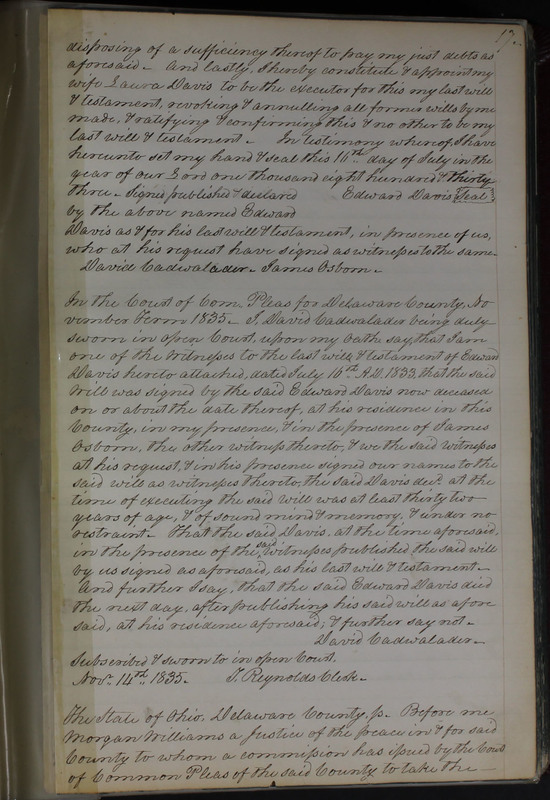 17.
disposing of a sufficiency thereof to pay my just debts as
aforesaid - And lastly, I hereby constitute & appoint my
wife Laura Davis to be the executor for this my last will
& testament, revoking & annulling all former wills by me
made, & ratifying & confirming this & no other to be my
last will & testament - In testimony whereof I have
hereunto set my hand & seal this 16th day of July in the
year of our Lord one thousand eight hundred & thirty
three - Signed published & declared Edward Davis Seal
by the above named Edward
Davis as & for his last will & testament, in presence of us,
who at his request have signed as witnesses to the same -
David Cadwalader - James Osborn -
In the Court of Com. Pleas for Delaware County, No
vember Term 1835 - I, David Cadwalader being duly
sworn in open Court, upon my oath say, that I am
one of the witnesses to the last will & testament of Edward
Davis hereto attached, dated July 16th A.D. 1833, that the said
Will was signed by the said Edward Davis now deceased
on or about the date thereof, at his residence in this
County, in my presence, & in the presence of James
Osborn, the other witness thereto, & we the said witnesses
at his request, & in his presence signed our name to the
said will as witnesses thereto, the said Davis decd at the
time of executing the said will was at least thirty two
years of age, & of sound mind & memory, & under no
restraint - That the said Davis, at the time aforesaid,
in the presence of the said witnesses published the said will
by us signed as aforesaid, as his last will & testament -
And further I say, that the said Edward Davis died
the next day, after publishing his said will as afore
said, at his residence aforesaid; & further say not -
David Cadwalader -
Subscribed & sworn to in open Court.
Novr 14th 1835 - T. Reynolds Clerk -
The State of Ohio, Delaware County, ss. Before me
Morgan Williams a Justice of the peace in & for said
County to whom a commission has issued by the Court
of Common Pleas of the said County to take the